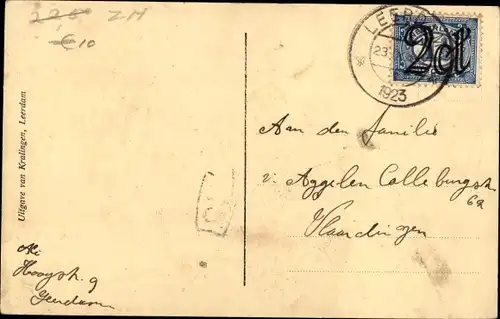 226 ZH
€10
LEERDAM
23
1923
2ct
Uitgave van Kralingen, Leerdam
Aan den familie
v. Aggelen Callenburgstr.
62
Vlaardingen
Hoogstr. 9
Leerdam